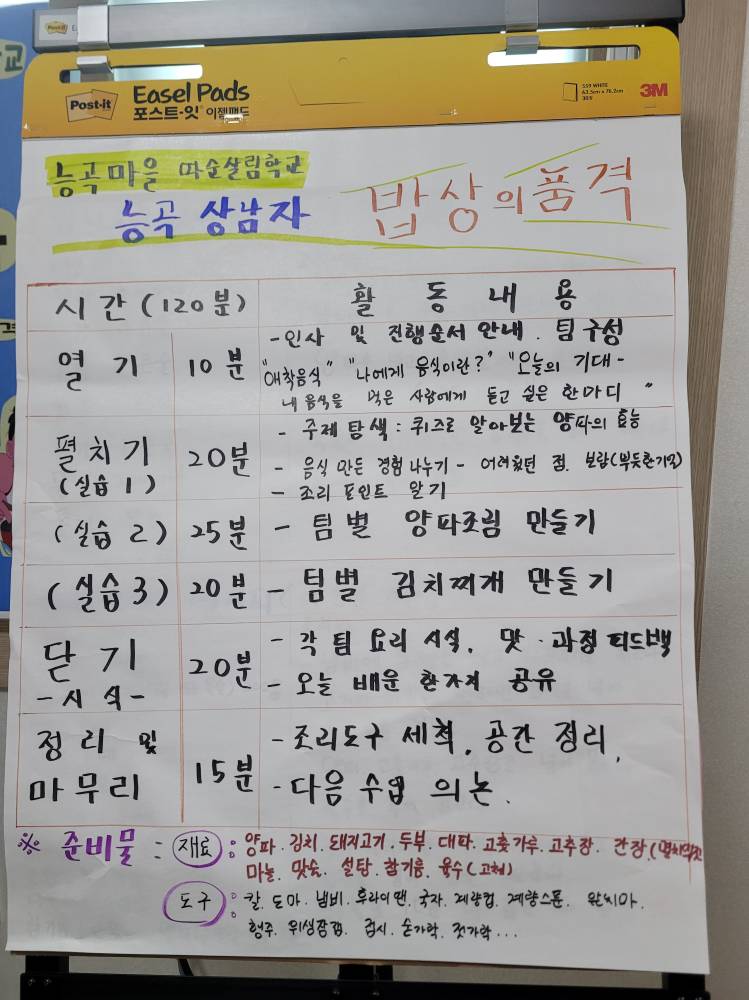 Post-it
Easel Pads
포스트-잇 이젤패드
559 WHITE
63.5cm x 76.2cm
30매
3M
능곡마을 따순살림학교
능곡 상남자
밥상의품격
시간(120분) 활동내용
열기 10분 -인사 및 진행순서 안내. 팀구성
"애착음식" "나에게 음식이란?" "오늘의 기대-
내 음식을 먹은 사람에게 듣고 싶은 한마디"
펼치기 (실습 1) 20분 - 주제탐색: 퀴즈로 알아보는 양파의 효능
- 음식 만든 경험 나누기 - 어려웠던 점. 보람(뿌듯한기억)
- 조리 포인트 알기
(실습 2) 25분 - 팀별 양파조림 만들기
(실습3) 20분 - 팀별 김치찌개 만들기
닫기 -시식- 20분 - 각 팀 요리 시식, 맛·과정 피드백
- 오늘 배운 한가지 공유
정리 및 마무리 15분 -조리도구 세척, 공간 정리,
-다음 수업 의논.
※ 준비물 : 재료 : 양파. 김치. 돼지고기. 두부. 대파. 고춧가루. 고추장. 간장.
마늘. 맛술. 설탕. 참기름. 육수(고체)
도구 : 칼. 도마. 냄비. 후라이팬. 국자. 계량컵. 계량스푼.
행주. 위생장갑. 접시. 숟가락. 젓가락...